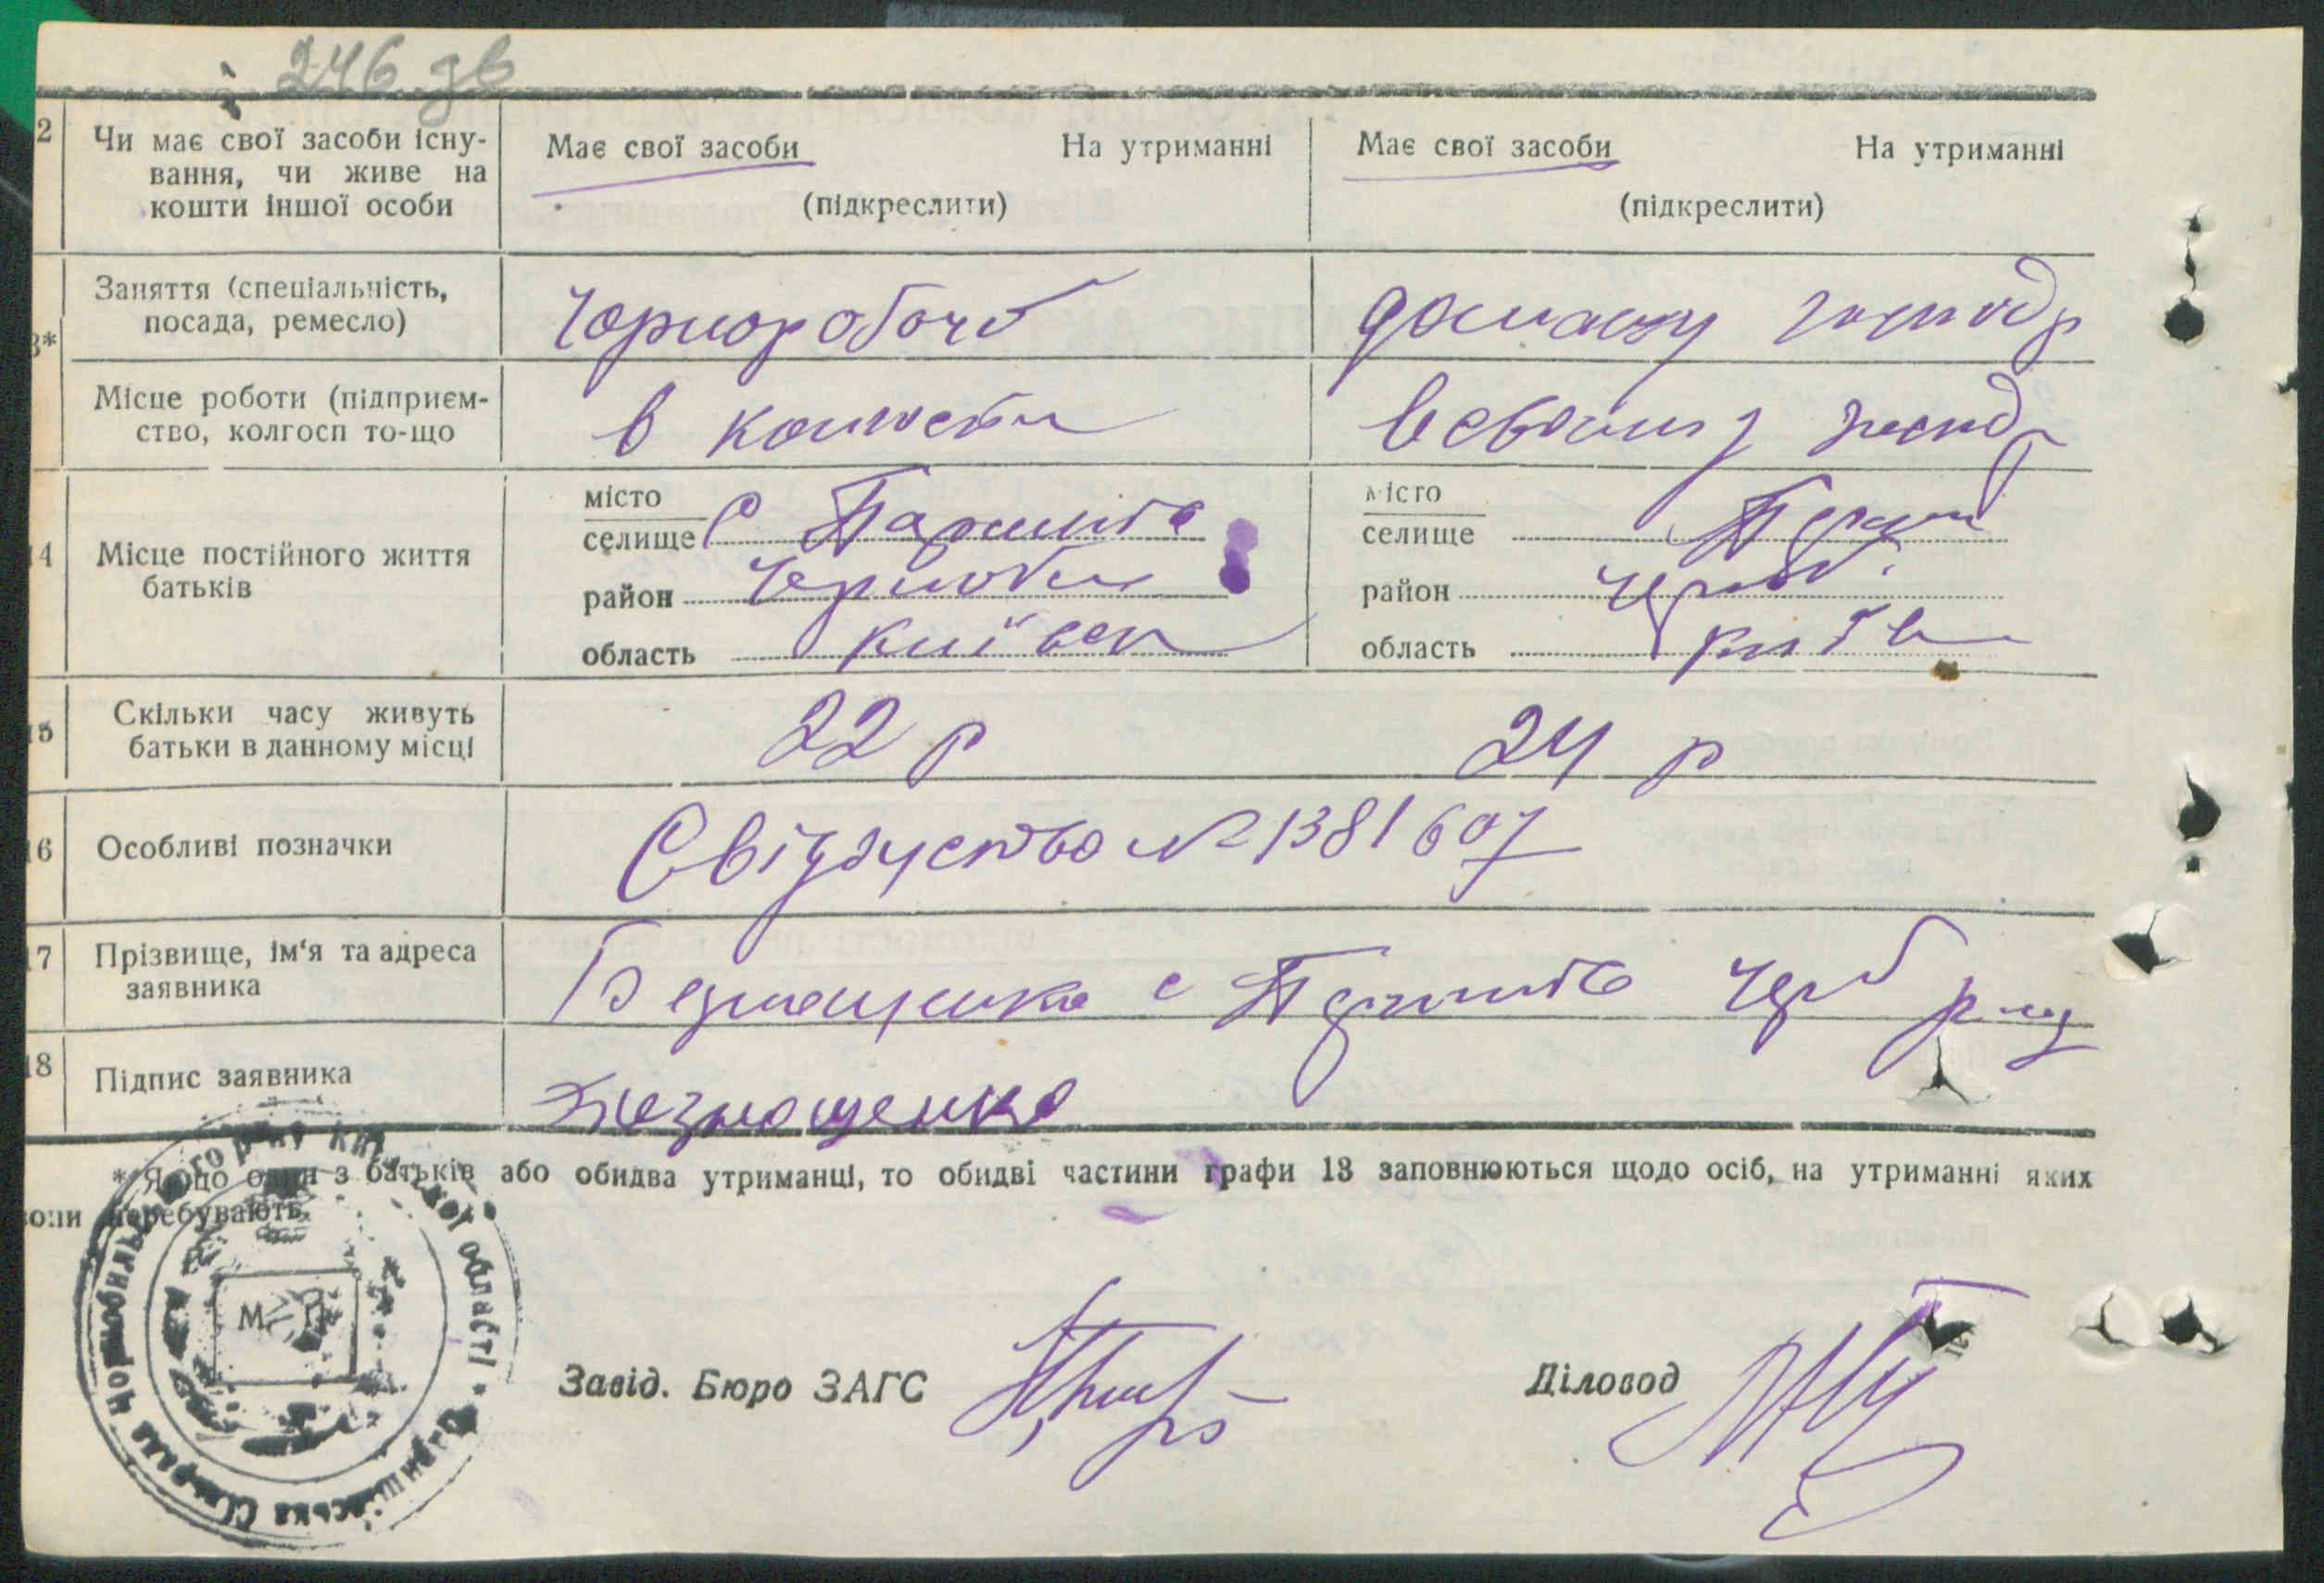 246 зв
2 Чи має свої засоби існу-
вання, чи живе на
кошти іншої особи
Має свої засоби На утриманні
(підкреслити)
Має свої засоби На утриманні
(підкреслити)
3*
Заняття (спеціальність,
посада, ремесло)
Чорноробочі
домашу господр
Місце роботи (підприєм-
ство, колгосп то-що
в
господ
14 Місце постійного життя
батьків
місто
селище с Паришів
район Чернобил
область Київськ
місто
селище Париш
район Черноб.
область Київ
15 Скільки часу живуть
батьки в данному місці
22 р 24 р
16 Особливі позначки
Свідоцтво № 1381607
17 Прізвище, ім'я та адреса
заявника
Безнощенко с Паришів Черноб
18 Підпис заявника
Безнощенко
* Якщо один з батьків або обидва утриманці, то обидві частини графи 13 заповнюються щодо осіб, на утриманні яких
вони перебувають.
М П
області
Паришівська Сільрада Чорнобильського р-ну Київської
Завід. Бюро ЗАГС
Діловод